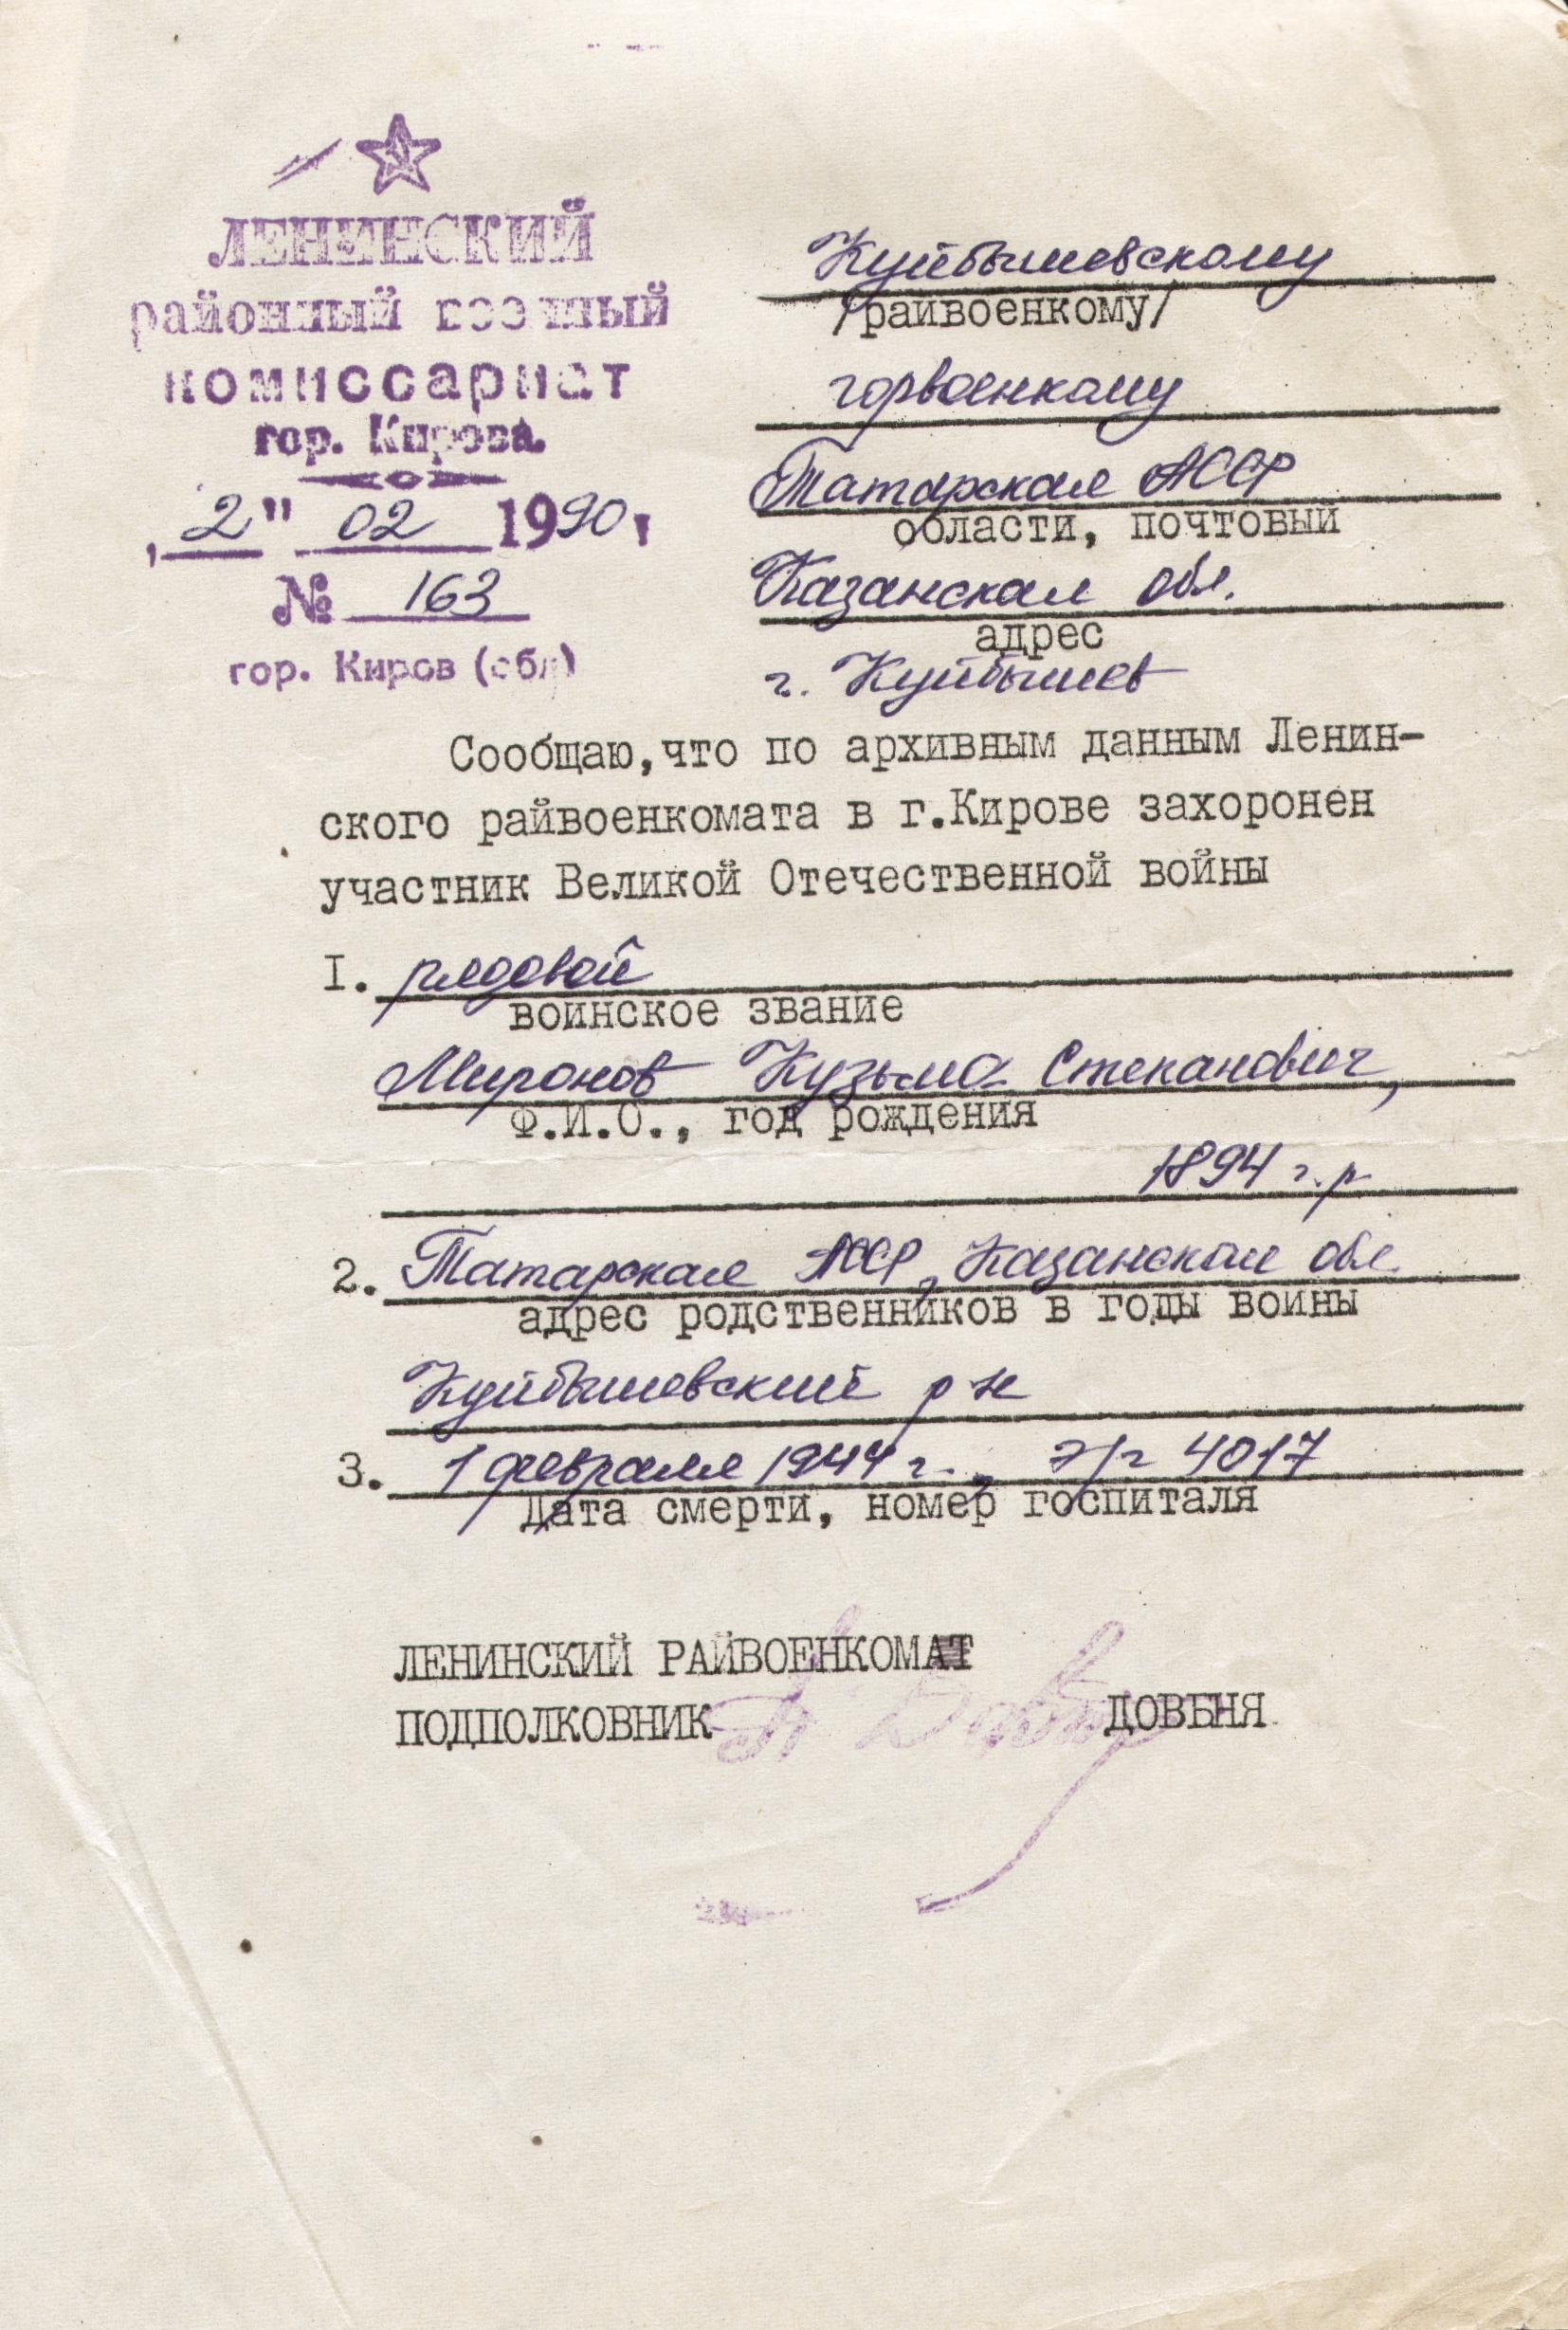 ЛЕНИНСКИЙ
районный военный
комиссариат
гор. Кирова
"2" 02 1990 г
№ 163
гор. Киров (обл)
Куйбышевскому
/райвоенкому/
горвоенкому
Татарская АССР
области, почтовый
Казанская обл.
адрес
г. Куйбышев
Сообщаю, что по архивным данным Ленин-
ского райвоенкомата в г.Кирове захоронен
участник Великой Отечественной войны
I. рядовой
воинское звание
Миронов Кузьма Степанович,
Ф.И.О., год рождения
1894 г.р
2. Татарская АССР, Казанская обл.
адрес родственников в годы войны
Куйбышевский р-н
3. 1 февраля 1944 г., э/г 4017
Дата смерти, номер госпиталя
ЛЕНИНСКИЙ РАЙВОЕНКОМАТ
ПОДПОЛКОВНИК ДОВБНЯ